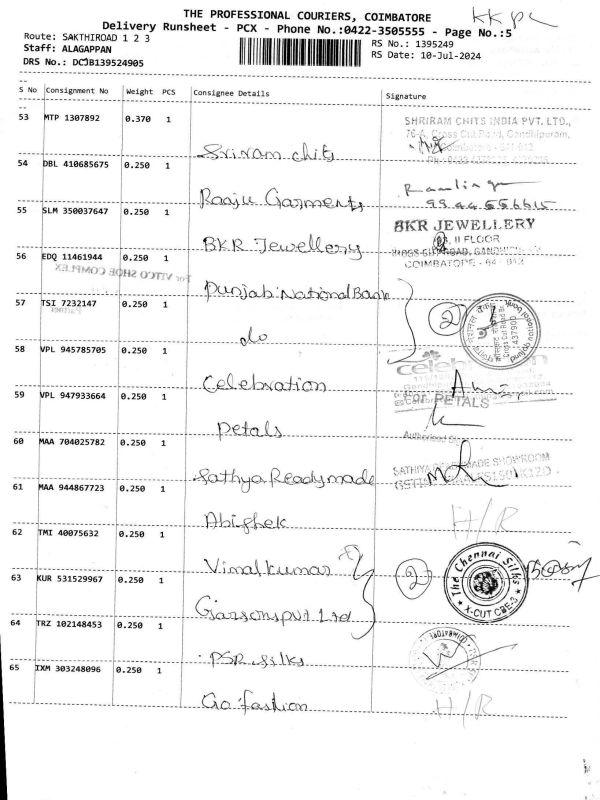 THE PROFESSIONAL COURIERS, COIMBATORE
KKPC
Delivery Runsheet - PCX - Phone No.:0422-3505555 - Page No.:5
Route: SAKTHIROAD 1 2 3
RS No.: 1395249
Staff: ALAGAPPAN
RS Date: 10-Jul-2024
DRS No.: DCJB139524905
S No Consignment No Weight PCS Consignee Details Signature
53 MTP 1307892 0.370 1
SHRIRAM CHITS INDIA PVT. LTD.,
76-A, Cross Cut Road, Gandhipuram,
Coimbatore - 641 012
Sriram chits
54 DBL 410685675 0.250 1
Raaju Garments
55 SLM 350037647 0.250 1
BKR JEWELLERY
II FLOOR
COIMBATORE - 64 012
BKR Jewellery
56 EDQ 11461944 0.250 1
For VITCO SHOE COMPLEX
Punjab National Bank
57 TSI 7232147 0.250 1
2
punjab national bank
Cross Cut Road Br.
do
58 VPL 945785705 0.250 1
celebration
Celebration
59 VPL 947933664 0.250 1
For PETALS
Petals
60 MAA 704025782 0.250 1
SATHIYA READYMADE SHOWROOM
Sathya Readymade
61 MAA 944867723 0.250 1
H/R
Abishek
62 TMI 40075632 0.250 1
Vimal kumar
2
The Chennai Silks
X-CUT CBE-3
63 KUR 531529967 0.250 1
Garsons pvt. Ltd
64 TRZ 102148453 0.250 1
PSR silks
65 IXM 303248096 0.250 1
H/R
Go fashion